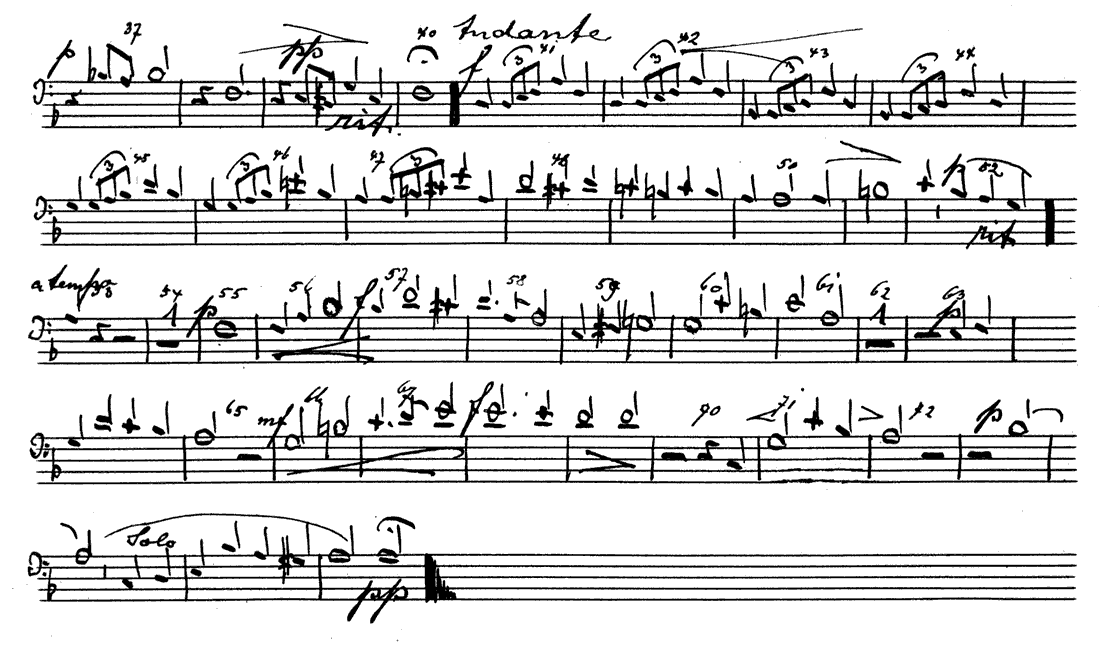 p 37 pp rit. 40 Andante f 3 41 3 42 3 43 3 44
3 45 3 46 47 3 48 50 p 52 rit
a tempo 53 54 1 p 55 56 f 57 58 59 60 61 62 1 63 p
65 mf 66 67 f 70 71 72 p
Solo pp